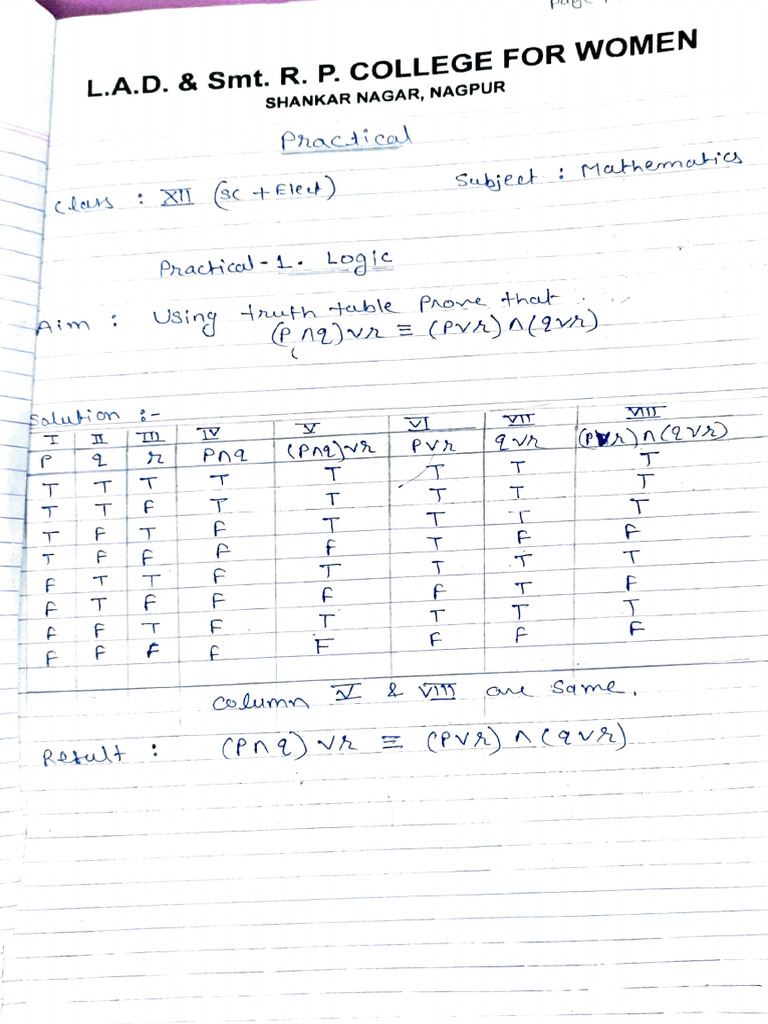 page
L.A.D. & Smt. R. P. COLLEGE FOR WOMEN
SHANKAR NAGAR, NAGPUR
Practical
Class : XII (SC + Elect) Subject : Mathematics
Practical-1. Logic
Aim : Using truth table Prove that
(P∧q)∨r ≡ (P∨r)∧(q∨r)
Solution :-
I II III IV V VI VII VIII
P q r P∧q (P∧q)∨r P∨r q∨r (P∨r)∧(q∨r)
T T T T T T T T
T T F T T T T T
T F T F T T T T
T F F F F T F F
F T T F T T T T
F T F F F F T F
F F T F T T T T
F F F F F F F F
Column V & VIII are same.
Result : (P∧q)∨r ≡ (P∨r)∧(q∨r)